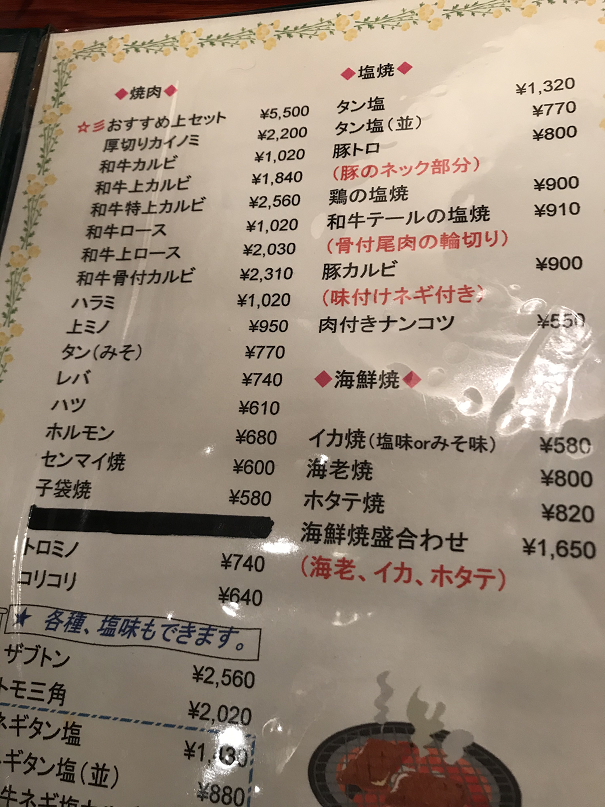 ◆焼肉◆
☆彡おすすめ上セット ¥5,500
厚切りカイノミ ¥2,200
和牛カルビ ¥1,020
和牛上カルビ ¥1,840
和牛特上カルビ ¥2,560
和牛ロース ¥1,020
和牛上ロース ¥2,030
和牛骨付カルビ ¥2,310
ハラミ ¥1,020
上ミノ ¥950
タン(みそ) ¥770
レバ ¥740
ハツ ¥610
ホルモン ¥680
センマイ焼 ¥600
子袋焼 ¥580
トロミノ ¥740
コリコリ ¥640
★ 各種、塩味もできます。
ザブトン ¥2,560
トモ三角 ¥2,020
ネギタン塩
ギタン塩(並) ¥880
牛ネギ塩
◆塩焼◆
タン塩 ¥1,320
タン塩(並) ¥770
豚トロ ¥800
(豚のネック部分)
鶏の塩焼 ¥900
和牛テールの塩焼 ¥910
(骨付尾肉の輪切り)
豚カルビ ¥900
(味付けネギ付き)
肉付きナンコツ ¥550
◆海鮮焼◆
イカ焼(塩味orみそ味) ¥580
海老焼 ¥800
ホタテ焼 ¥820
海鮮焼盛合わせ ¥1,650
(海老、イカ、ホタテ)